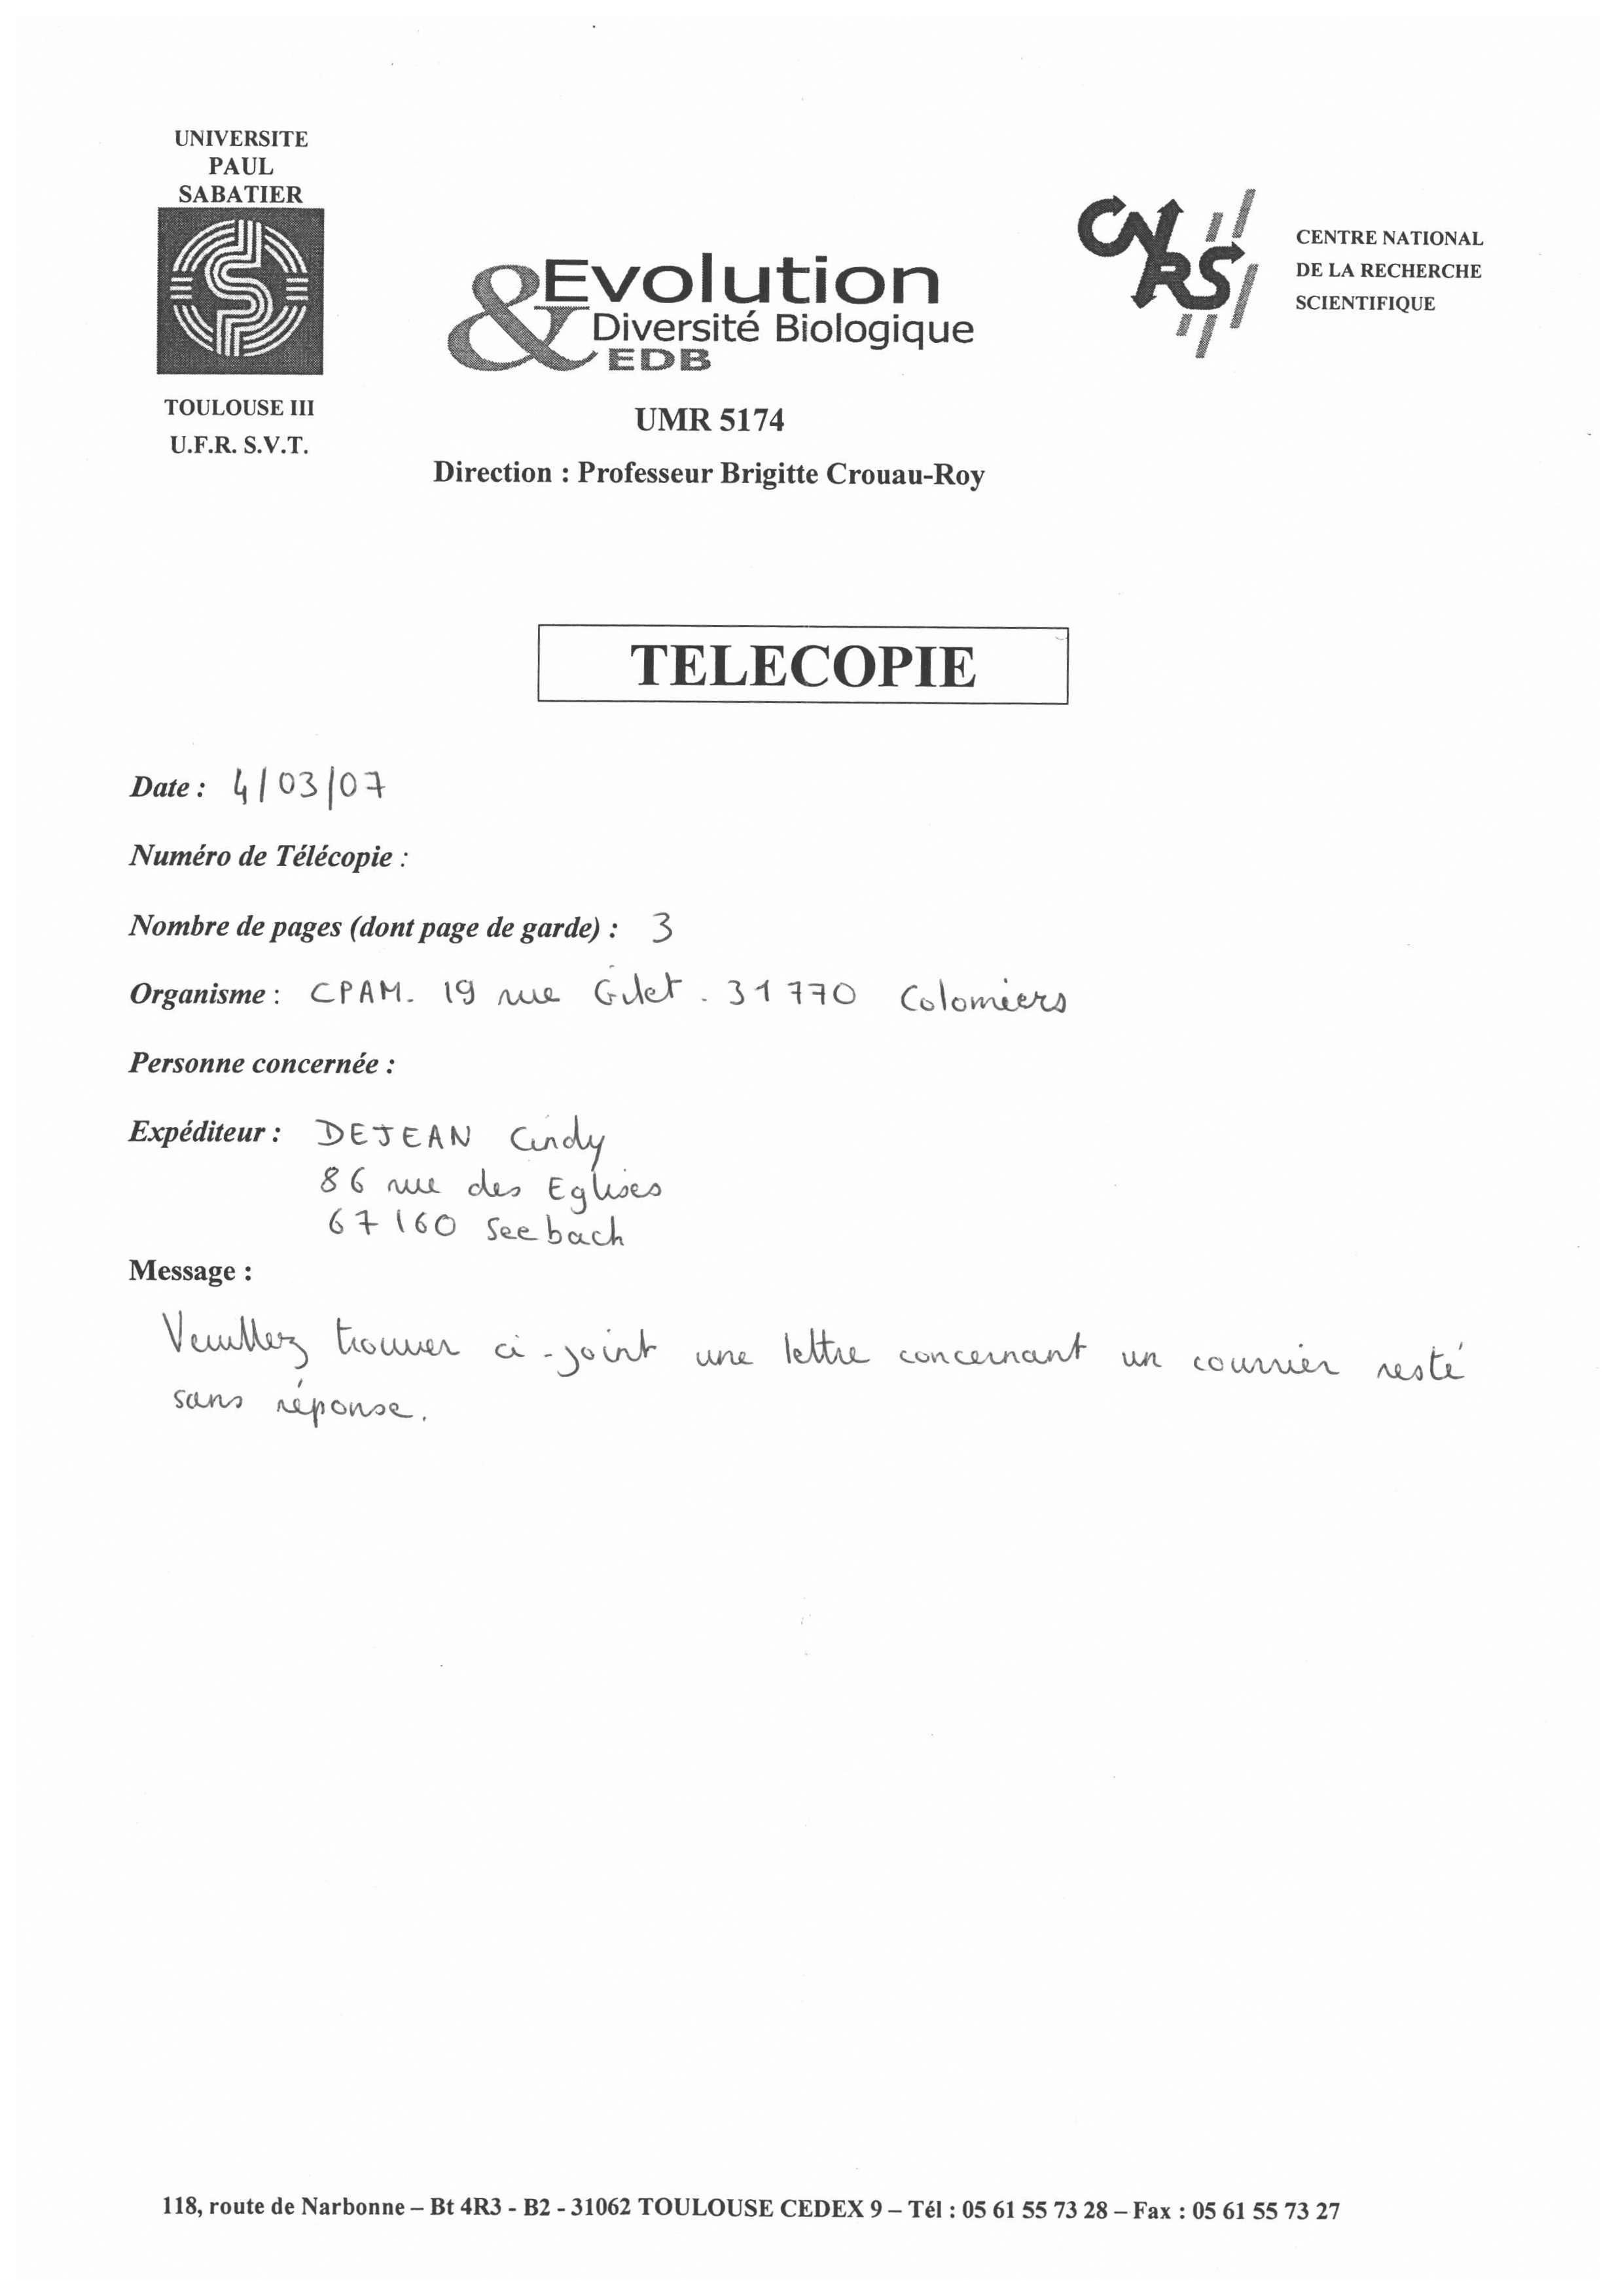 UNIVERSITE
PAUL
SABATIER
TOULOUSE III
U.F.R. S.V.T.
&Evolution
Diversité Biologique
EDB
UMR 5174
Direction : Professeur Brigitte Crouau-Roy
CNRS
CENTRE NATIONAL
DE LA RECHERCHE
SCIENTIFIQUE
TELECOPIE
Date : 4/03/07
Numéro de Télécopie :
Nombre de pages (dont page de garde) : 3
Organisme : CPAM. 19 rue Gilet . 31770 Colomiers
Personne concernée :
Expéditeur : DEJEAN Cindy
86 rue des Eglises
67160 Seebach
Message :
Veuillez trouver ci-joint une lettre concernant un courrier resté
sans réponse.
118, route de Narbonne – Bt 4R3 - B2 - 31062 TOULOUSE CEDEX 9 – Tél : 05 61 55 73 28 – Fax : 05 61 55 73 27